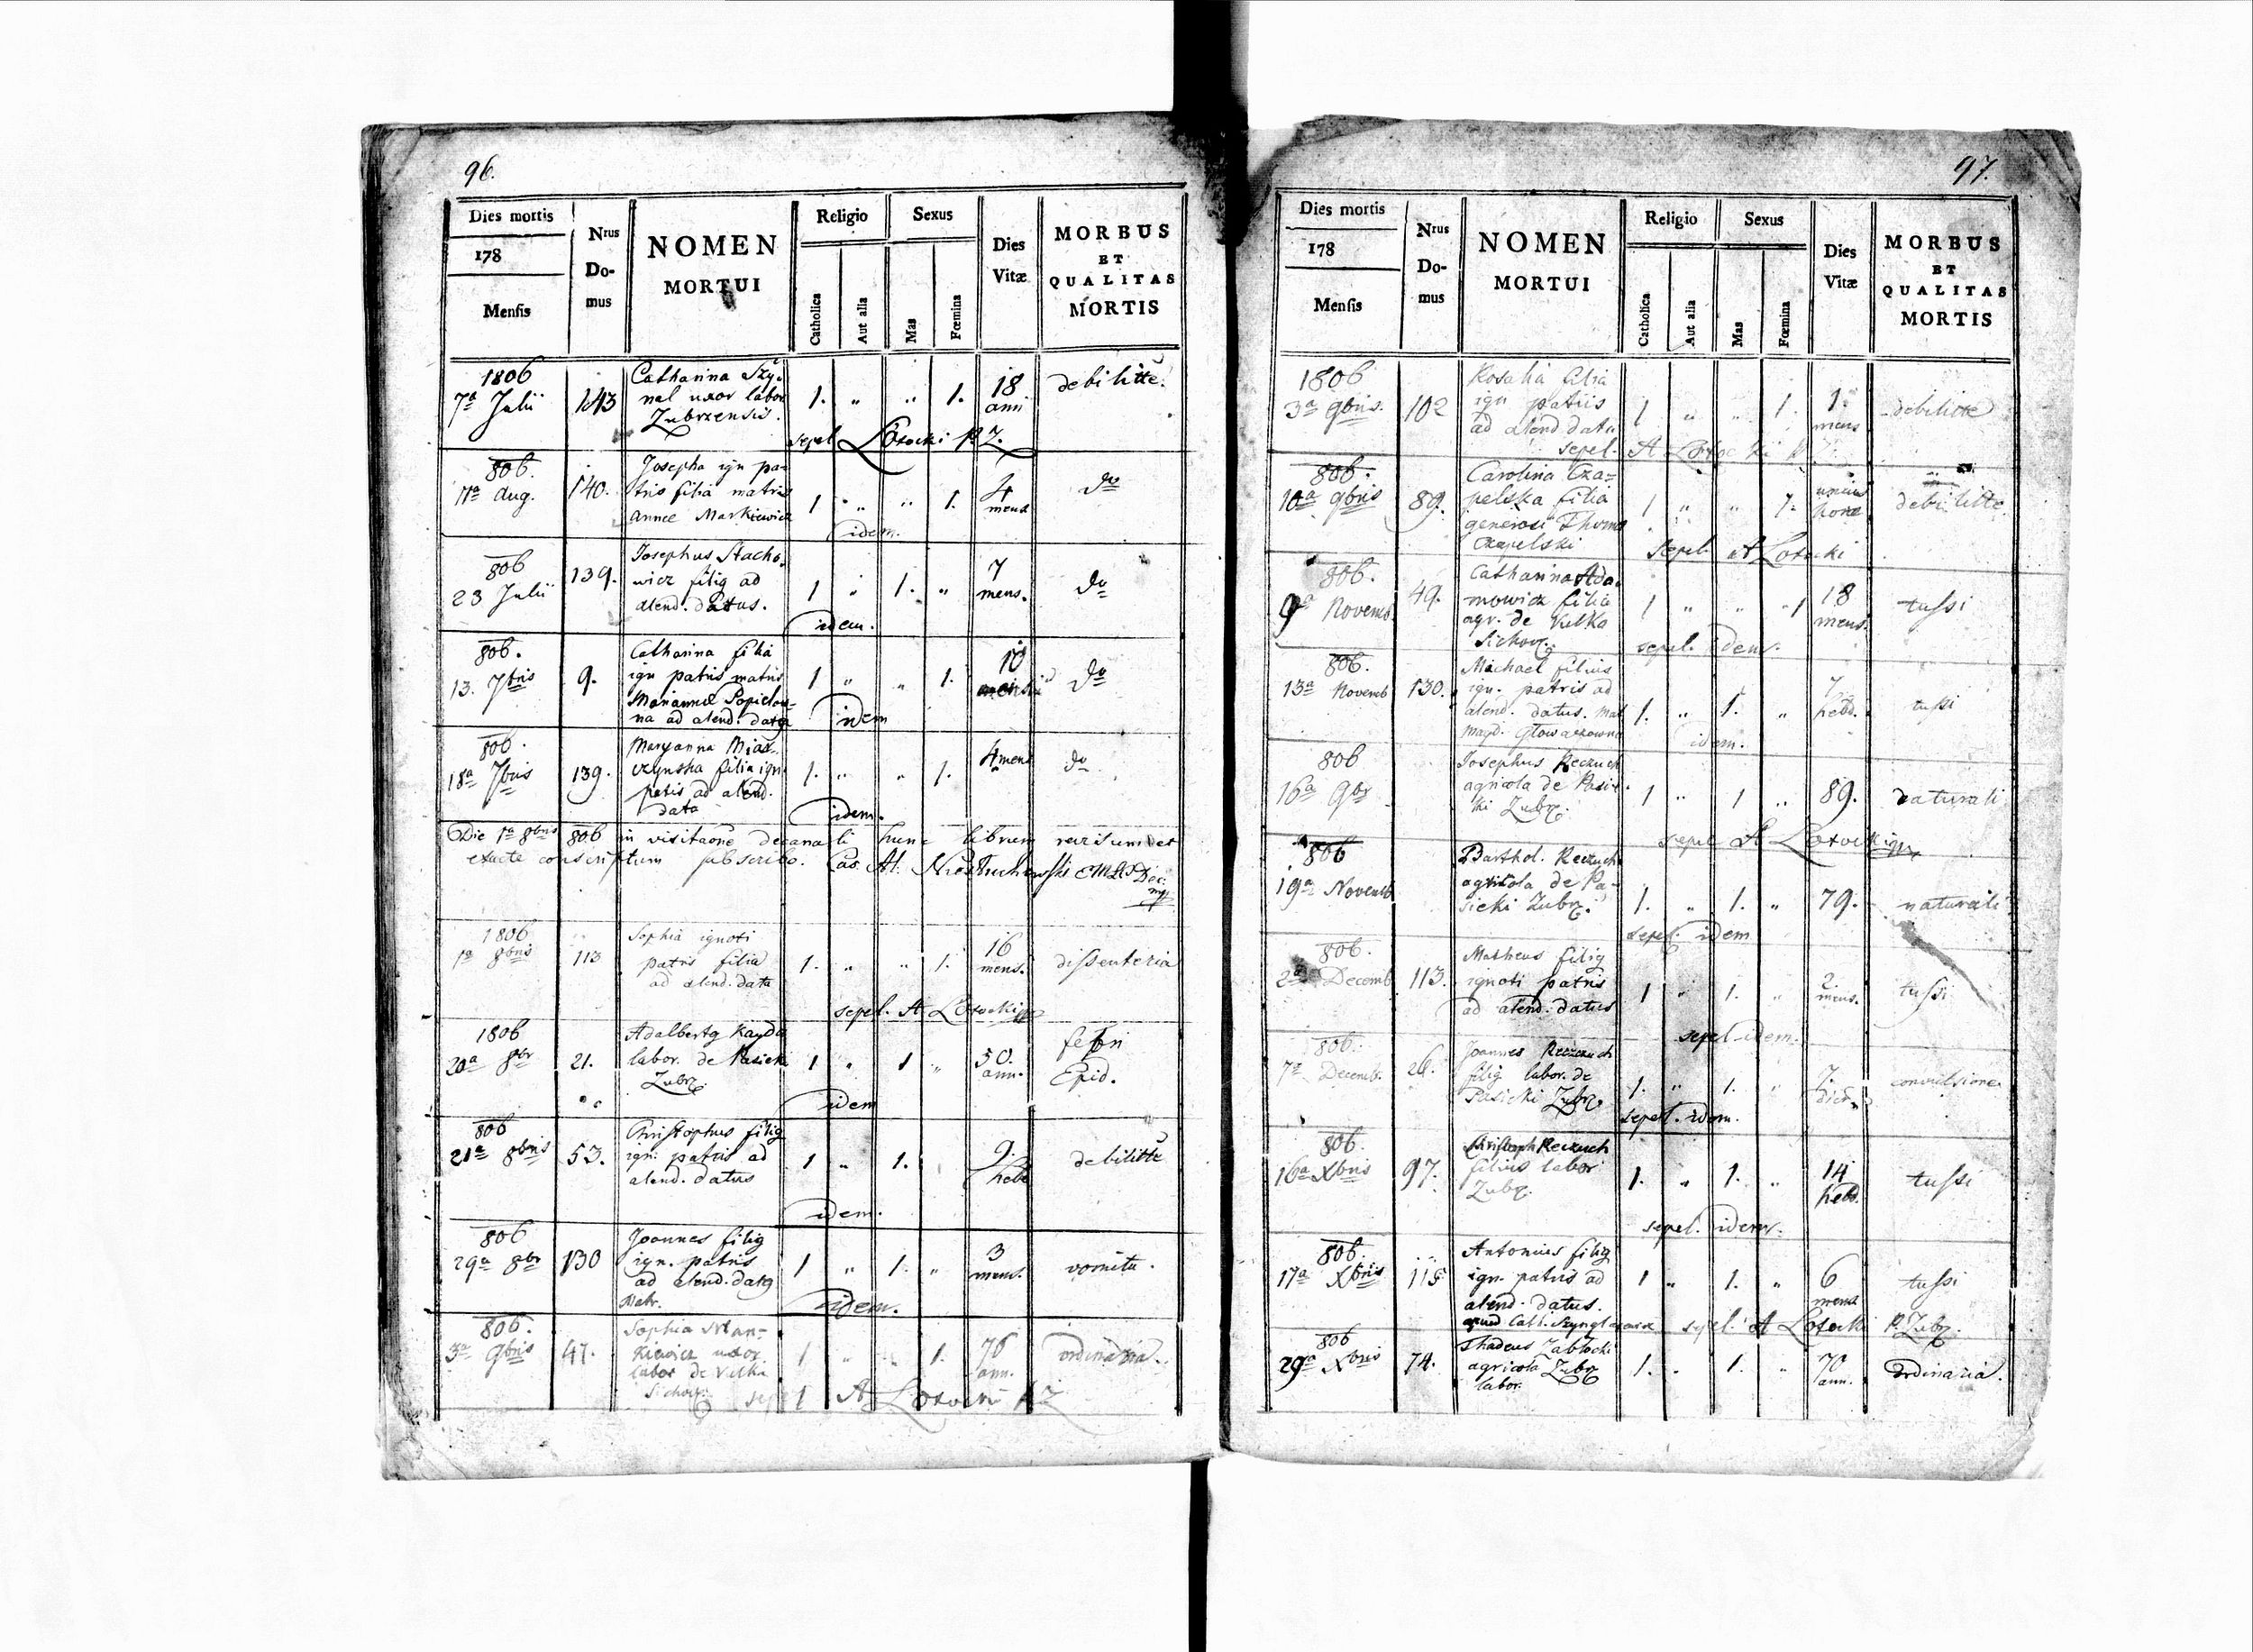 96.
Dies mortis
178
Mensis
Nrus Do-mus
NOMEN MORTUI
Religio
Catholica
Aut alia
Sexus
Mas
Fœmina
Dies Vitæ
MORBUS ET QUALITAS MORTIS
1806
7a Julii 143 Catharina Szy-
nal uxor labor
Zubrzensis. 1. „ „ 1. 18 ann debilitte.
sepel Łotocki P. Z.
806.
11a Aug. 140. Josepha ign pa-
tris filia matris
Annae Markiewicz 1 „ „ 1. 4 mens do
idem.
806
23 Julii 139. Josephus Stacho-
wicz filig ad
alend. datus. 1 „ 1. „ 7 mens. do
idem.
806.
13. 7bris 9. Catharina filia
ign patris matris
Mariannae Popielow-
na ad alend. data 1 „ „ 1. 10 do
idem
806.
18a 7bris 139. Maryanna Mias-
czynska filia ign
patris ad alend.
data 1. „ „ 1. 4 mens do
idem.
Die 1a 8bris 806 in visitaone decanali hunc librum revisum et
exacte conscriptum subscribo.
1806
1a 8bris 113 Sophia ignoti
patris filia
ad alend. data 1. „ „ 1. 16 mens. dissenteria
sepel. A Łotocki
1806
20a 8br 21. Adalbertg Kayda
labor. de Pasieki
Zubrz. 1 „ 1 „ 50. ann. febri Epid.
idem
806
21a 8bris 53. Christophus filig
ign. patris ad
alend. datus 1 „ 1. 9. hebd debilitte
idem.
806
29a 8br 130 Joannes filig
ign. patris
ad alend. datg
Matr. 1 „ 1. „ 3 mens. vomitu.
idem.
806.
3a 9bris 47. Sophia Man-
kiewicz uxor
labor de Vulka
Sichow. 1 „ „ 1. 76 ann. ordinaria.
sepel A Łotocki P Z
97.
Dies mortis
178
Mensis
Nrus Do-mus
NOMEN MORTUI
Religio
Catholica
Aut alia
Sexus
Mas
Fœmina
Dies Vitæ
MORBUS ET QUALITAS MORTIS
1806
3a 9bris. 102 Rosalia filia
ign patris
ad alend data 1 „ „ 1. 1. mens debilitte
sepel. A Łotocki P Z.
806.
10a 9bris 89. Carolina Cza-
pelska filia
generosi Thoma
Czapelski 1 „ „ 1. unius horae debilitte
Sepel. A Łotocki
806.
9a Novemb 49. Catharina Ada-
mowicz filia
agr. de Vulka
Sichow. 1 „ „ 1 18 mens. tussi
sepel. idem.
806.
13a Novemb 130. Michael filius
ign. patris ad
alend. datus. mat
Magd. Głowaczowna 1. „ 1. „ 7 hebd. tussi
idem.
806
16a 9br Josephus Reczuch
agricola de Pasie-
ki Zubrz. 1 „ 1 „ 89. naturali
sepel A Łotocki
806
19a Novemb Barthol. Reczuch
agricola de Pa-
sieki Zubrz. 1. „ 1. „ 79. naturali
sepel. idem
806.
2a Decemb 113. Matheus filig
ignoti patris
ad alend. datus 1 „ 1. „ 2. mens. tussi
sepel idem.
806.
7a Decemb. 26. Joannes Reczuch
filig labor. de
Pasieki Zubrz. 1. „ 1. „ 7. convulsione
sepel. idem.
806.
16a Xbris 97. Christoph Reczuch
filius labor
Zubrz. 1. „ 1. „ 14 hebd. tussi
sepel. idem.
806.
17a Xbris 115 Antonius filig
ign. patris ad
alend. datus. 1 „ 1. „ 6 mens tussi
sepel. A Łotocki P. Zubrz.
806
29a Xbris 74. Thadeus Zabłocki
agricola Zubrz
labor. 1. „ 1. „ 70 ann. Ordinaria.